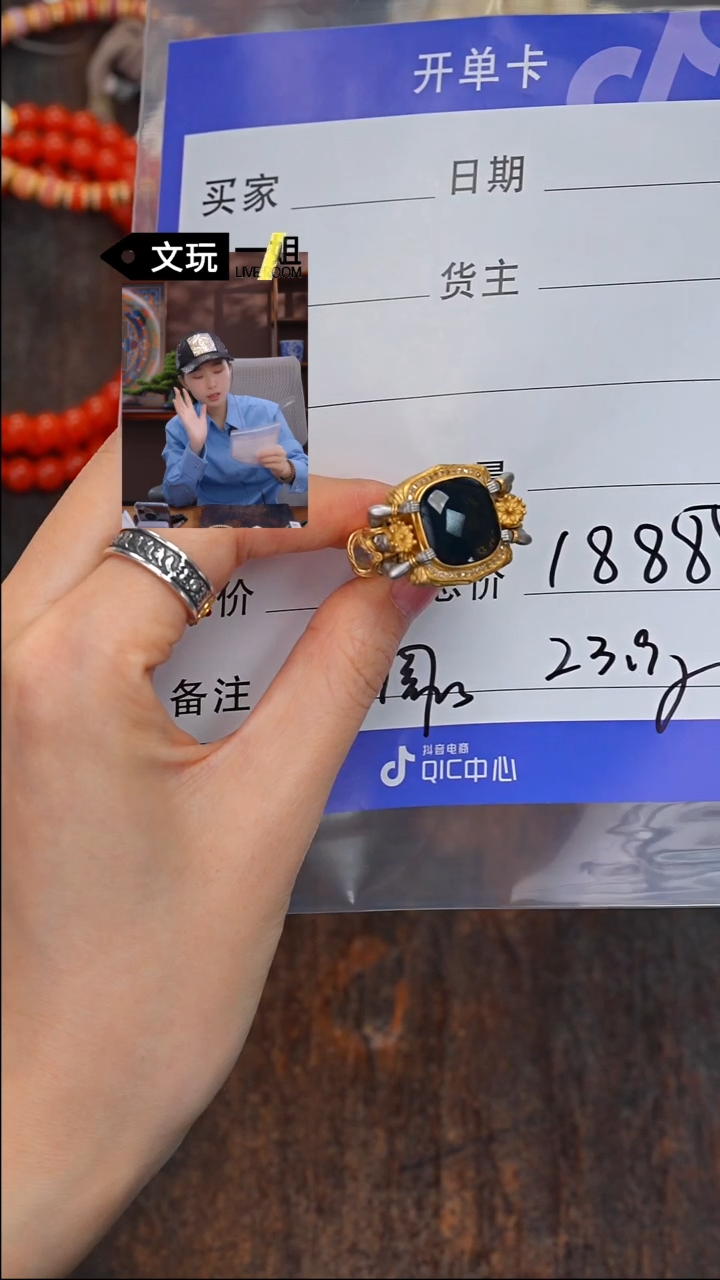 开单卡
买家 日期
文玩一姐
LIVE ROOM
货主
价 总价 1888
备注 23.9g
抖音电商
QIC中心